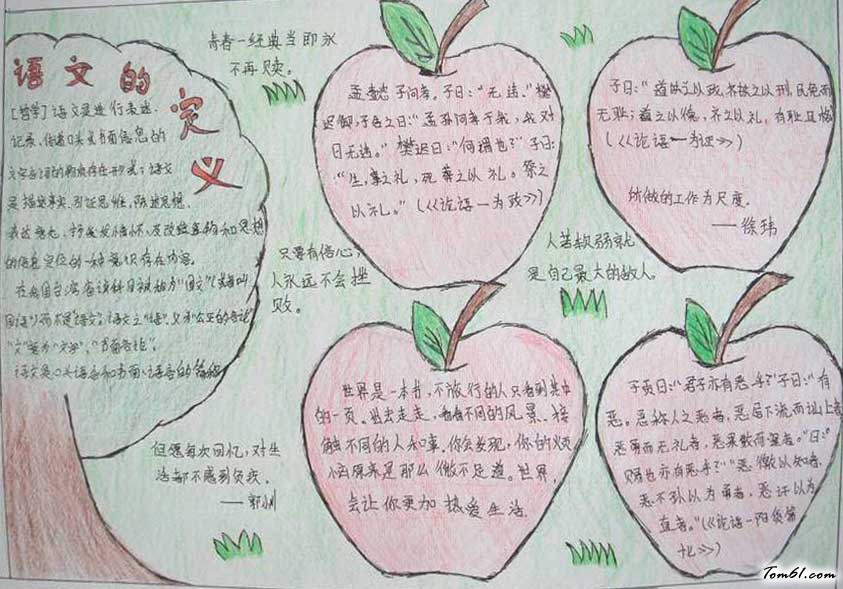 语文的
定
义
[哲学]语文是进行表述、
记录、传递口头或书面信息的
文字言词的物质存在形式；语文
是描绘事实、引证思维、陈述思想、
表达意志、抒发情怀、及改造事物和思想
的信息定位的一种意识存在内容。
在我国台湾省该科目被称为"国文"(或者叫
国语")而不是"语文"，语文之"语"，
"文"意为"文学"、"书面言论"。
语文是口头语言和书面语言的简称
青春一经典当即永
不再赎。
孟懿子问孝。子曰："无违。"樊
迟御，子告之曰："孟孙问孝于我，我对
曰无违。"樊迟曰："何谓也？"子曰：
"生，事之礼，死葬之以礼。祭之
以礼。"(《论语一为政》)
子曰："道之以政，齐之以刑，民免而
无耻；道之以德，齐之以礼，有耻且格
(《论语一为证》)
所做的工作为尺度。
——徐玮
只要有信心，
人永远不会挫
败。
人若软弱就
是自己最大的敌人。
世界是一本书，不旅行的人只看到其中
的一页。出去走走，看看不同的风景、接
触不同的人和事。你会发现，你的烦
恼原来是那么微不足道。世界，
会让你更加热爱生活.
但愿每次回忆，对生
活都不感到负疚。
——郭
子贡曰："君子亦有恶乎？"子曰："有
恶。恶称人之恶者，恶居下流而讪上者，
恶勇而无礼者，恶果敢而窒者。"曰：
"赐也亦有恶乎？""恶徼以知者，
恶不孙以为勇者，恶讦以为
直者。"(《论语一阳货第
十七》)
Tom61.com